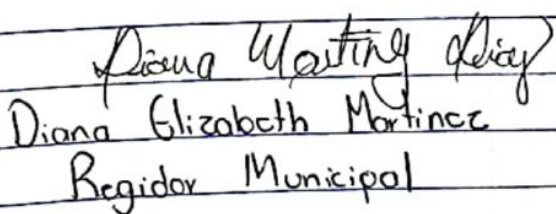 Diana Martinez Diaz
Diana Elizabeth Martinez
Regidor Municipal